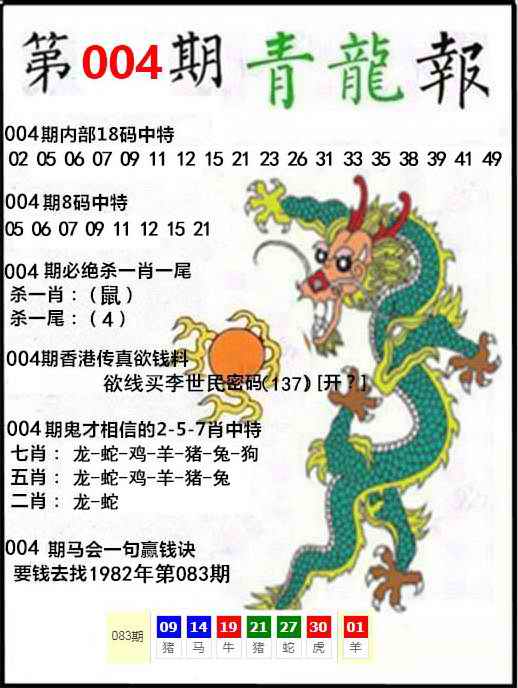 第004期青龍報
004期内部18码中特
02 05 06 07 09 11 12 15 21 23 26 31 33 35 38 39 41 49
004期8码中特
05 06 07 09 11 12 15 21
004 期必绝杀一肖一尾
杀一肖：（鼠）
杀一尾：（4）
004期香港传真欲钱料
欲线买李世民密码(137) [开？]
004期鬼才相信的2-5-7肖中特
七肖： 龙-蛇-鸡-羊-猪-兔-狗
五肖： 龙-蛇-鸡-羊-猪-兔
二肖： 龙-蛇
004 期马会一句赢钱诀
要钱去找1982年第083期
083期 09 14 19 21 27 30 01
猪 马 牛 猪 蛇 虎 羊